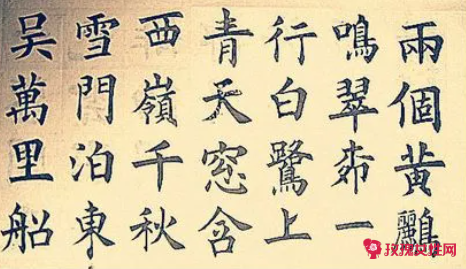 兩個黄鸝
鳴翠柳一
行白鷺上
青天窓含
西嶺千秋
雪門泊東
吴萬里船